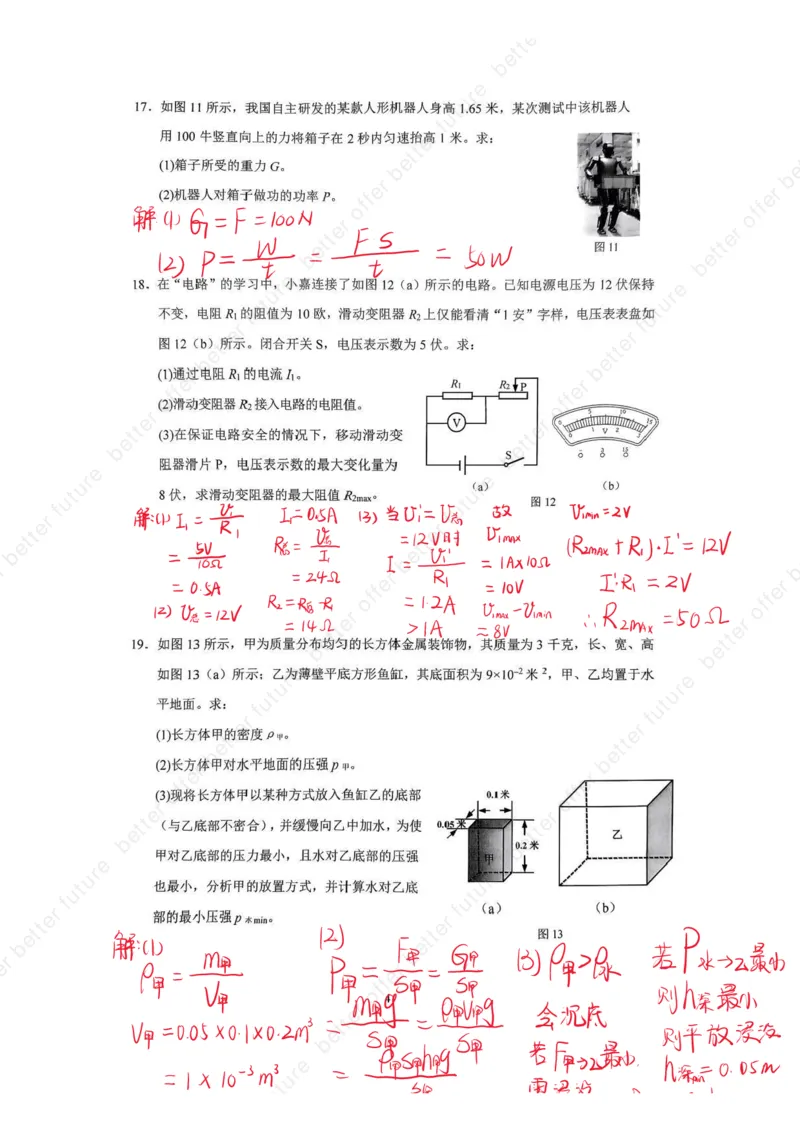 17. 如图11所示，我国自主研发的某款人形机器人身高1.65米，某次测试中该机器人
用100牛竖直向上的力将箱子在2秒内匀速抬高1米。求：
(1)箱子所受的重力G。
(2)机器人对箱子做功的功率P。
图11
解(1) G=F=100N
(2) P=W/t = FS/t = 50W
18. 在“电路”的学习中，小嘉连接了如图12（a）所示的电路。已知电源电压为12伏保持
不变，电阻R₁的阻值为10欧，滑动变阻器R₂上仅能看清“1安”字样，电压表表盘如
图12（b）所示。闭合开关S，电压表示数为5伏。求：
(1)通过电阻R₁的电流I₁。
(2)滑动变阻器R₂接入电路的电阻值。
(3)在保证电路安全的情况下，移动滑动变
阻器滑片P，电压表示数的最大变化量为
8伏，求滑动变阻器的最大阻值R₂max。
R₁ R₂ P
V
S
0 5 10 15
0 1 V 2 3
- 3 15
(a) (b)
图12
解:(1) I₁=U₁/R₁
=5V/10Ω
=0.5A
(2) U总=12V
I=0.5A
R总=U总/I
=24Ω
R₂=R总-R₁
=14Ω
(3) 当U₁'=U总
=12V时
I=U₁'/R₁
=1.2A
>1A
故
U₁max
=1A×10Ω
=10V
U₁max-U₁min
=8V
U₁min=2V
(R₂max+R₁)·I'=12V
I'·R₁=2V
∴R₂max=50Ω
19. 如图13所示，甲为质量分布均匀的长方体金属装饰物，其质量为3千克，长、宽、高
如图13（a）所示；乙为薄壁平底方形鱼缸，其底面积为9×10⁻²米²，甲、乙均置于水
平地面。求：
(1)长方体甲的密度ρ甲。
(2)长方体甲对水平地面的压强p甲。
(3)现将长方体甲以某种方式放入鱼缸乙的底部
（与乙底部不密合），并缓慢向乙中加水，为使
甲对乙底部的压力最小，且水对乙底部的压强
也最小，分析甲的放置方式，并计算水对乙底
部的最小压强p水min。
0.1米
0.05米
0.2米
甲
乙
(a) (b)
图13
解:(1)
ρ甲=m甲/V甲
V甲=0.05×0.1×0.2m³
=1×10⁻³m³
(2)
P甲=F甲/S甲=G甲/S甲
=m甲g/S甲=ρ甲V甲g/S甲
=ρ甲S甲h甲g/S甲
(3) ρ甲>ρ水
会沉底
若F甲→乙最小
需浸没
若P水→乙最小
则h深最小
则平放浸没
h深min=0.05m
better offer better future